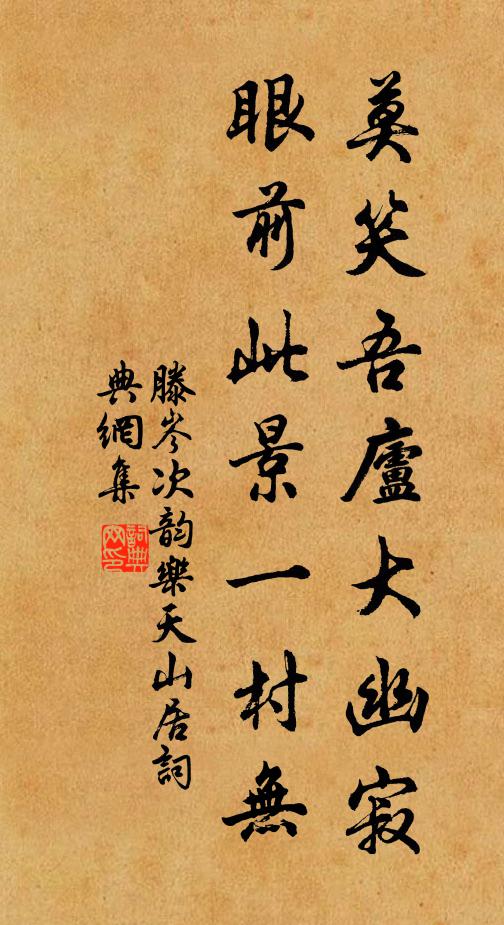 莫笑吾廬大幽寂
眼前此景一村無
滕岑次韵樂天山居詞
典網集
詞典网印